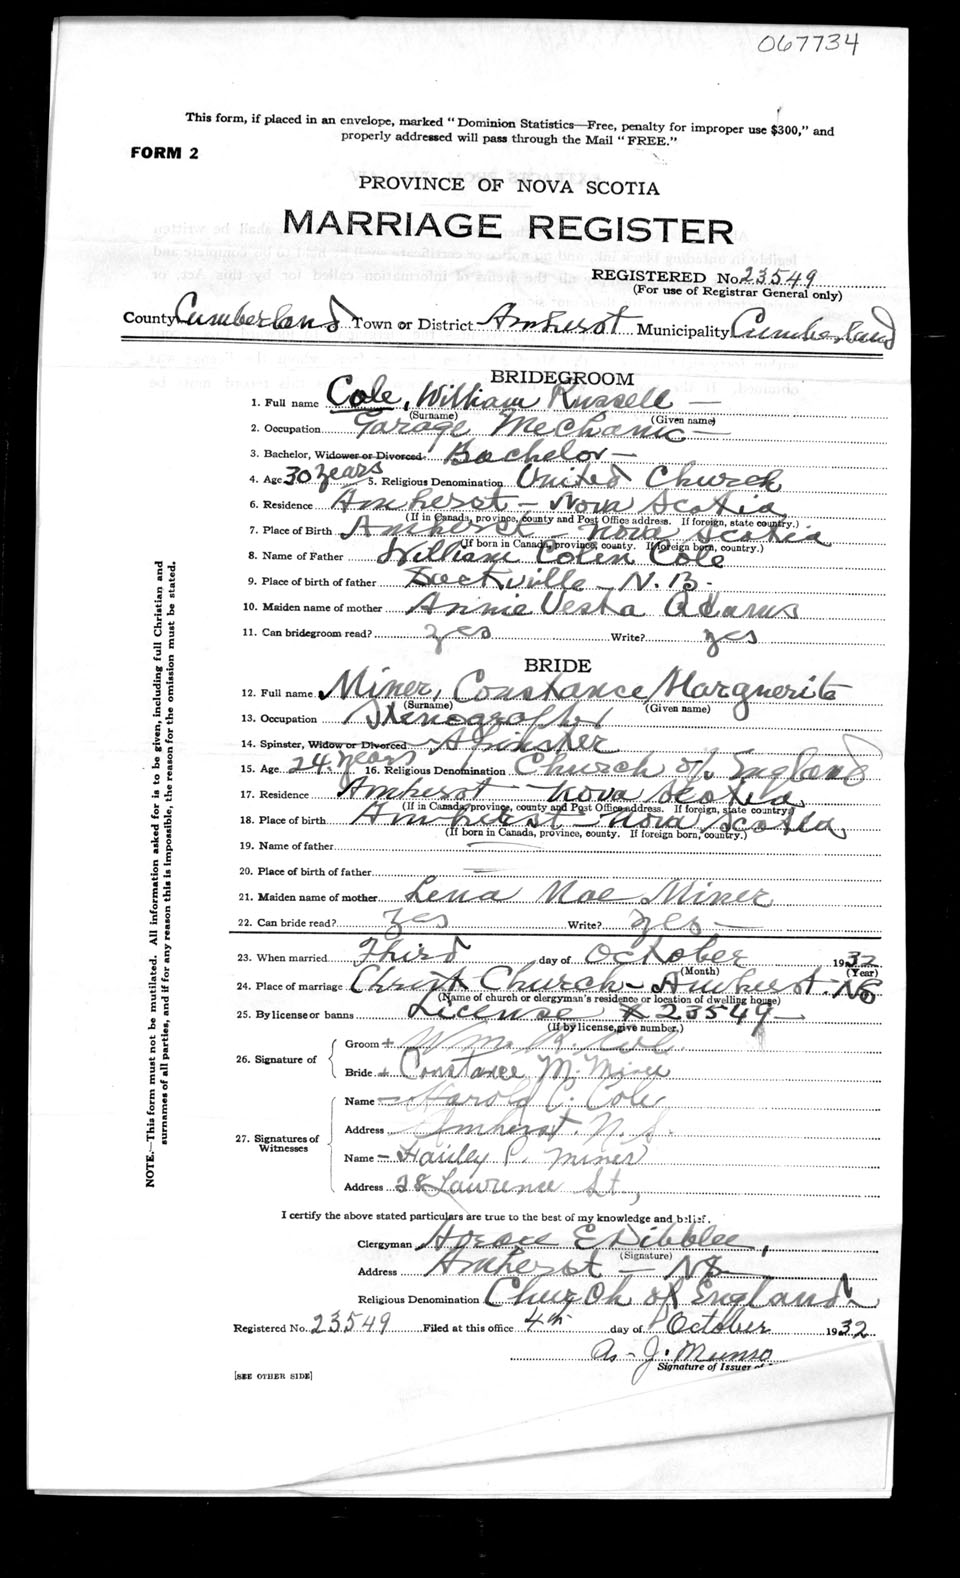 067734
This form, if placed in an envelope, marked "Dominion Statistics—Free, penalty for improper use $300," and
properly addressed will pass through the Mail "FREE."
FORM 2
PROVINCE OF NOVA SCOTIA
MARRIAGE REGISTER
REGISTERED No. 23549
(For use of Registrar General only)
County Cumberland Town or District Amherst Municipality Cumberland
BRIDEGROOM
1. Full name Cole, William Russell —
(Surname) (Given name)
2. Occupation Garage Mechanic —
3. Bachelor, Widower or Divorced Bachelor —
4. Age 30 years 5. Religious Denomination United Church
6. Residence Amherst — Nova Scotia
(If in Canada, province, county and Post Office address. If foreign, state country.)
7. Place of Birth Amherst — Nova Scotia
(If born in Canada, province, county. If foreign born, country.)
8. Name of Father William Colin Cole
9. Place of birth of father Sackville — N. B.
10. Maiden name of mother Annie Vesta Adams
11. Can bridegroom read? yes Write? yes
BRIDE
12. Full name Miner, Constance Marguerite
(Surname) (Given name)
13. Occupation Stenographer
14. Spinster, Widow or Divorced Spinster
15. Age 24 years 16. Religious Denomination Church of England
17. Residence Amherst — Nova Scotia
(If in Canada, province, county and Post Office address. If foreign, state country.)
18. Place of birth Amherst — Nova Scotia
(If born in Canada, province, county. If foreign born, country.)
19. Name of father —
20. Place of birth of father —
21. Maiden name of mother Lena Mae Miner
22. Can bride read? yes Write? yes —
23. When married Third day of October 1932
(Month) (Year)
24. Place of marriage Christ Church — Amherst. NS
(Name of church or clergyman's residence or location of dwelling house)
25. By license or banns License 23549 —
(If by license, give number.)
26. Signature of
Groom + Wm. R. Cole
Bride + Constance M. Miner
27. Signatures of Witnesses
Name — Harold C. Cole
Address Amherst, N.S.
Name — P. Miner
Address 28 Lawrence St.,
I certify the above stated particulars are true to the best of my knowledge and belief.
Clergyman Horace E Dibblee,
(Signature)
Address Amherst — NS
Religious Denomination Church of England
Registered No. 23549 Filed at this office 4th day of October 1932
J. Munro
Signature of Issuer
[SEE OTHER SIDE]
NOTE.—This form must not be mutilated. All information asked for is to be given, including full Christian and
surnames of all parties, and if for any reason this is impossible, the reason for the omission must be stated.